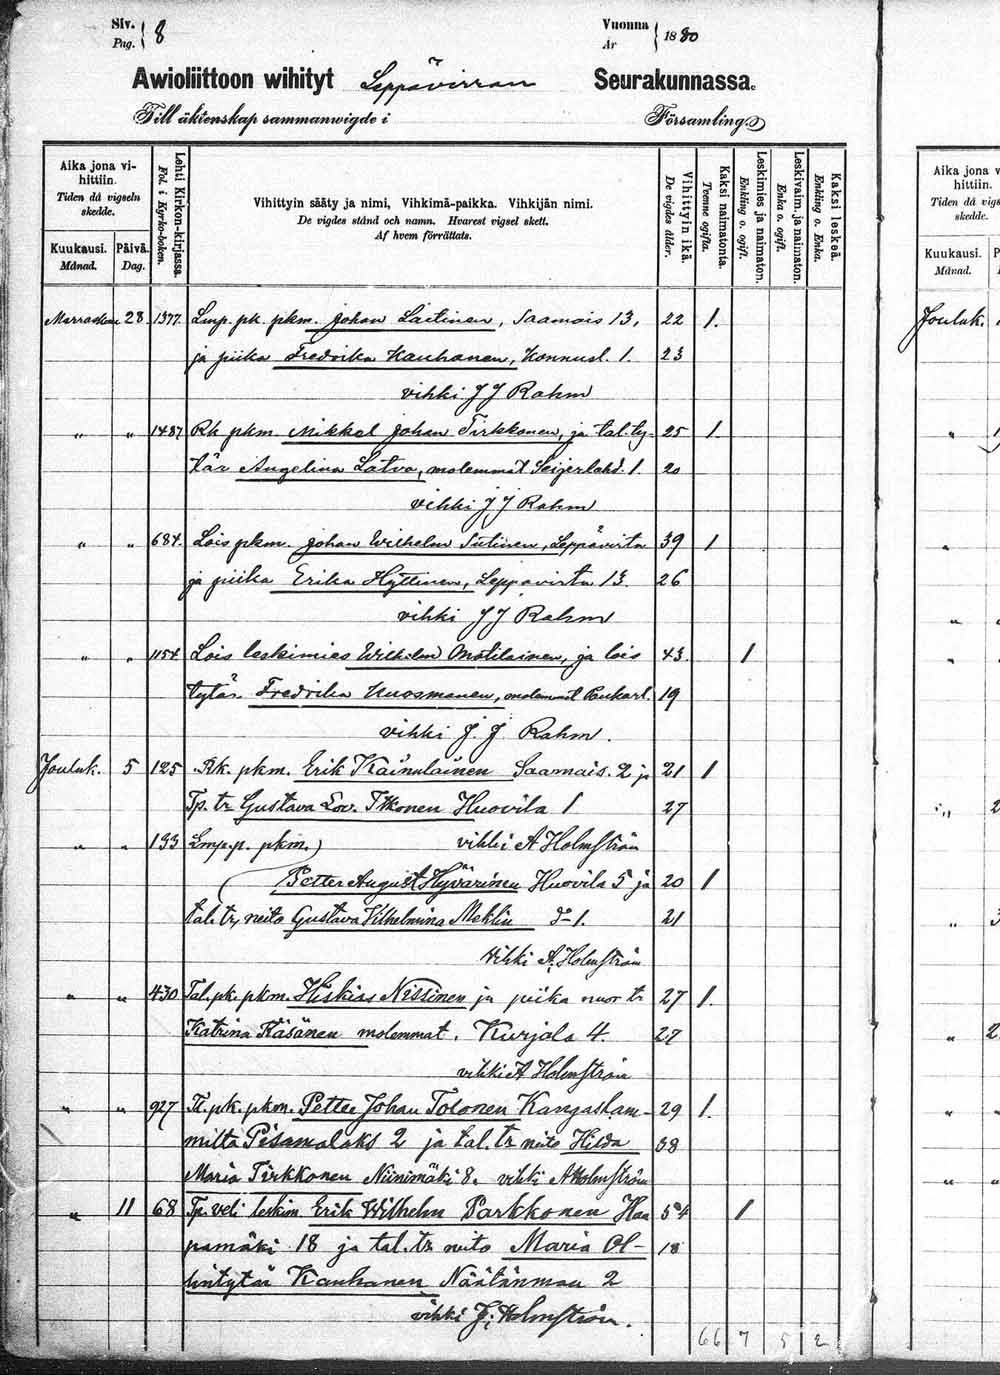 Siv. Pag. 8 Vuonna År 1880
Awioliittoon wihityt Leppävirran Seurakunnassa.
Till äktenskap sammanwigde i Församling
Aika jona vihittiin. Tiden då vigseln skedde.
Kuukausi. Månad. Päivä. Dag.
Lehti Kirkon-kirjassa. Fol. i Kyrko-boken.
Vihittyin sääty ja nimi, Vihkimä-paikka. Vihkijän nimi.
De vigdes stånd och namn. Hvarest vigsel skett.
Af hvem förrättats.
Vihittyin ikä. De vigdes ålder.
Kaksi naimatonta. Tvenne ogifta.
Leskimies ja naimaton. Enkling o. ogift.
Leskivaim. ja naimaton. Enka o. ogift.
Kaksi leskeä. Enkling o. Enka.
Marraskuu 28 1377. Lmp. pk. pkm. Johan Laitinen, Saamais 13, 22 1.
ja piika Fredrika Kauhanen, Konnusl. 1. 23
vihki J J Rahm
" " 1487 Rk pkm Mikkel Johan Tirkkonen, ja tal. ty- 25 1.
tär Angelina Latva, molemmat Seijerlahd. 1. 20
vihki J J Rahm
" " 684. Lois pkm. Johan Wilhelm Sutinen, Leppävirta 39 1
ja piika Erika Hyttinen, Leppävirta 13. 26
vihki J J Rahm
" " 1154. Lois leskimies Wilhelm Motilainen, ja lois 43. 1
tytär Fredrika Kuosmanen, molemmat Paukarl. 19
vihki J. J Rahm.
Jouluk. 5 125 Rk. pkm. Erik Kainulainen Saamais. 2 ja 21 1
Tp. tr Gustava Lov. Itkonen Huovila 1 27
" " 133 Lmp. p. pkm.) vihki A Holmström
Petter August Hyvärinen Huovila 5 ja 20 1
tal. tr, neito Gustava Vilhelmina Mehlin 1. 21
vihki A. Holmström
" " 430 Tal. pk. pkm. Hiskias Nissinen ja piika nuor tr 27 1.
Katrina Räsänen molemmat. Kurjala 4. 27
vihki A Holmström
" " 927 Tl. pk. pkm. Petter Johan Tolonen Kangaslam- 29 1.
milta Pisamalaks 2 ja tal. tr neito Hilda 38
Maria Tirkkonen Niinimäki 8. vihki A Holmström
" 11 68 Tp. veli leskim Erik Wilhelm Parkkonen Haa 54 1
pamäki 18 ja tal. tr neito Maria Ol- 18
lintytär Kauhanen Näätänmaa 2
vihki J; Holmström.
66 7 5 2
Aika jona v
hittiin.
Tiden då vigs
skedde.
Kuukausi. P
Månad.
Jouluk.